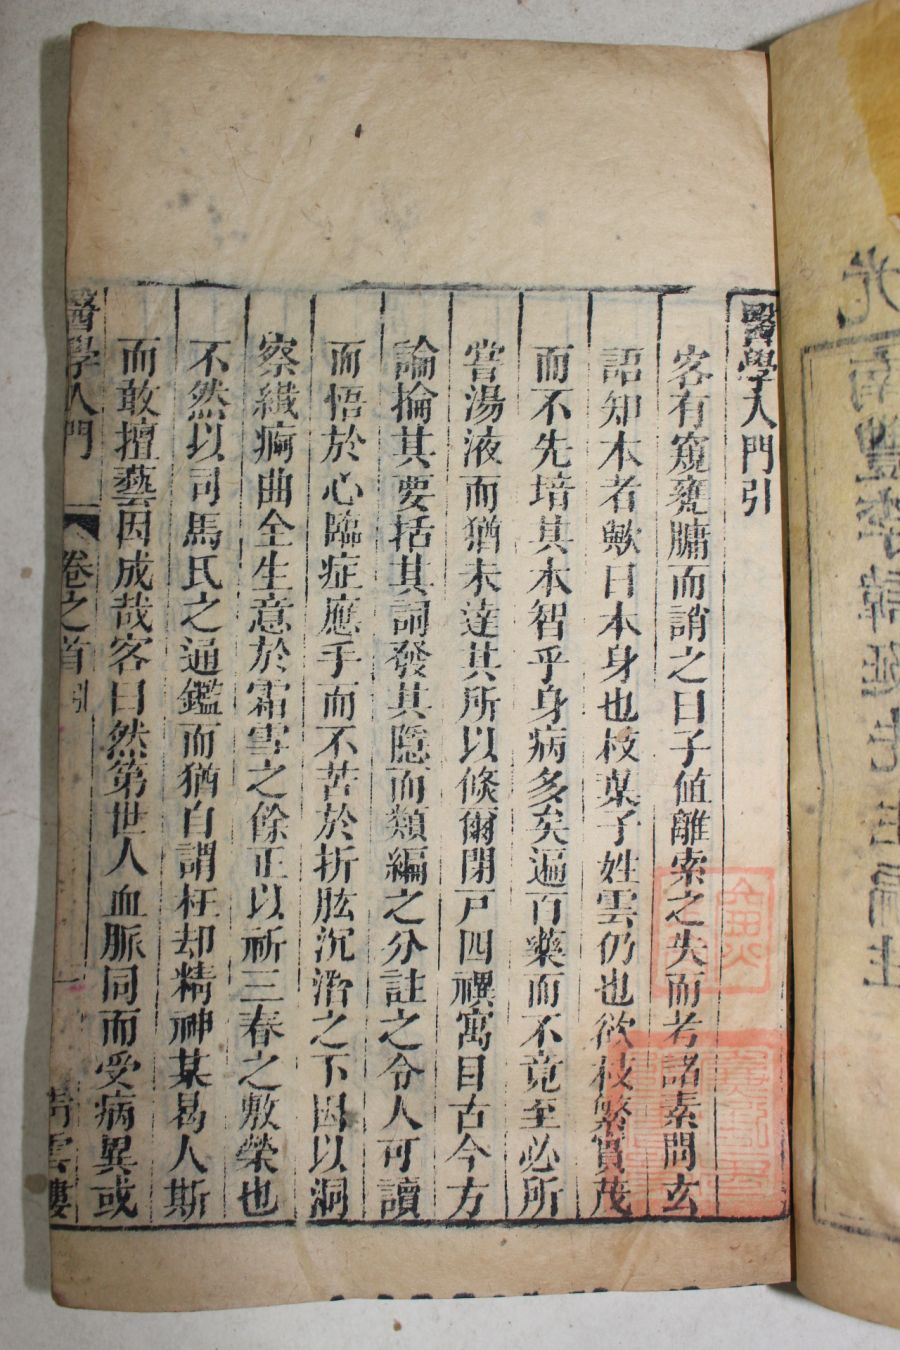 醫學入門引
客有窺甕牖而誚之曰子值離索之失而考諸素問玄
語知本者歟曰本身也枝葉子姓雲仍也欲枝繁實茂
而不先培其本智乎身病多矣遍百藥而不竟至必所
嘗湯液而猶未達其所以倐爾閉戸四禩寓目古今方
論掄其要括其詞發其隱而類編之分註之令人可讀
而悟於心臨症應手而不苦於折肱沉潛之下因以洞
察纖痾曲全生意於霜雪之餘正以祈三春之敷榮也
不然以司馬氏之通鑑而猶自謂枉却精神某曷人斯
而敢擅藝因成哉客曰然第世人血脈同而受病異或
醫學入門
卷之首
引
一
青雲樓